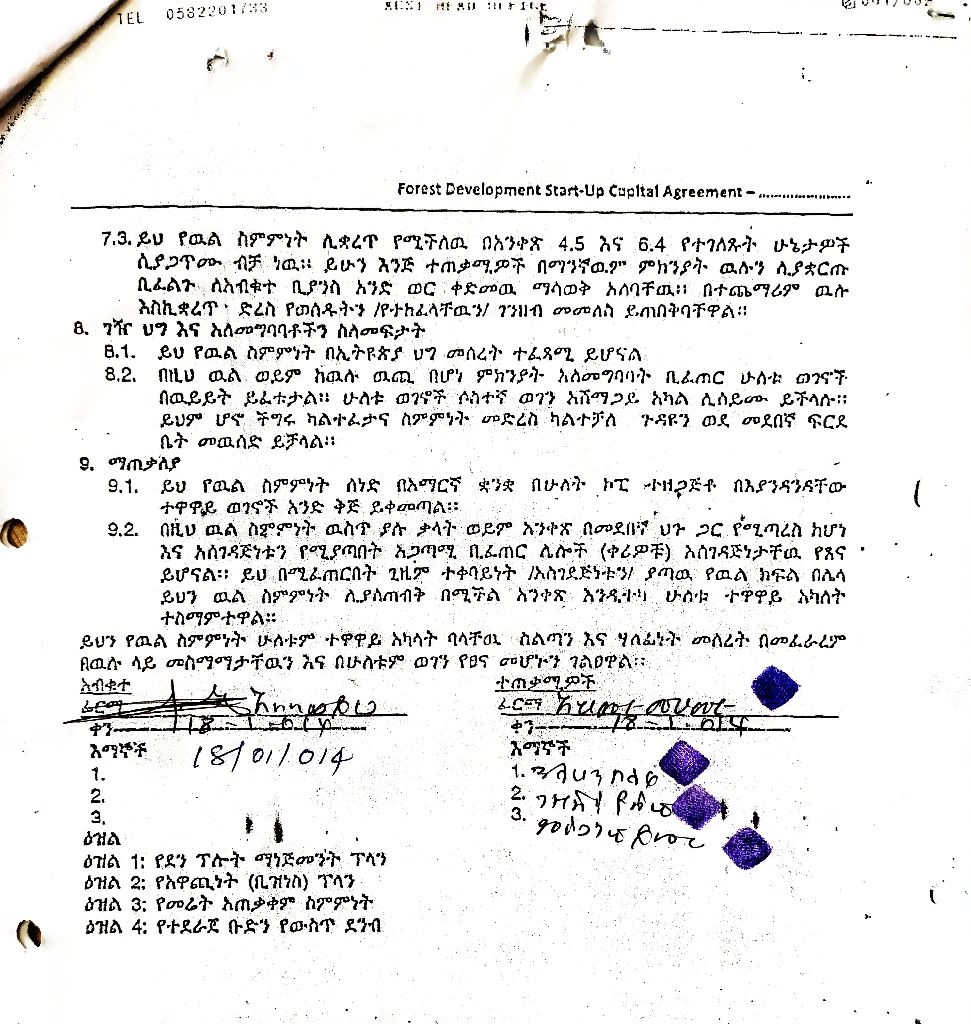 TEL 0582201733
HEAD OFFICE
Forest Development Start-Up Cupital Agreement – ......................
7.3. ይህ የዉል ስምምነት ሊቋረጥ የሚችለዉ በአንቀጽ 4.5 እና 6.4 የተገለጹት ሁኔታዎች
ሲያጋጥሙ ብቻ ነዉ። ይሁን እንጅ ተጠቃሚዎች በማንኛዉም ምክንያት ዉሉን ሲያቋርጡ
ቢፈልጉ ለአብቁተ ቢያንስ አንድ ወር ቀድመዉ ማሳወቅ አለባቸዉ። በተጨማሪም ዉሉ
እስኪቋረጥ ድረስ የወሰዱትን /የተከፈላቸዉን/ ገንዘብ መመለስ ይጠበቅባቸዋል።
8. ገዥ ህግ እና አለመግባባቶችን ስለመፍታት
8.1. ይህ የዉል ስምምነት በኢትዮጵያ ህግ መሰረት ተፈጻሚ ይሆናል
8.2. በዚህ ዉል ወይም ከዉሉ ዉጪ በሆነ ምክንያት አለመግባባት ቢፈጠር ሁለቱ ወገኖች
በዉይይት ይፈቱታል። ሁለቱ ወገኖች ሶስተኛ ወገን አሸማጋይ አካል ሊሰይሙ ይችላሉ።
ይህም ሆኖ ችግሩ ካልተፈታና ስምምነት መድረስ ካልተቻለ ጉዳዩን ወደ መደበኛ ፍርድ
ቤት መዉሰድ ይቻላል።
9. ማጠቃለያ
9.1. ይህ የዉል ስምምነት ሰነድ በአማርኛ ቋንቋ በሁለት ኮፒ ተዘጋጅቶ በእያንዳንዳቸው
ተዋዋይ ወገኖች አንድ ቅጅ ይቀመጣል።
9.2. በዚህ ዉል ስምምነት ዉስጥ ያሉ ቃላት ወይም አንቀጽ በመደበኛ ህጉ ጋር የሚጣረስ ከሆነ
እና አስገዳጅነቱን የሚያጣበት አጋጣሚ ቢፈጠር ሌሎች (ቀሪዎቹ) አስገዳጅነታቸዉ የጸና
ይሆናል። ይህ በሚፈጠርበት ጊዜም ተቀባይነት /አስገደጅነቱን/ ያጣዉ የዉል ክፍል በሌላ
ይህን ዉል ስምምነት ሊያስጠብቅ በሚችል አንቀጽ እንዲተካ ሁለቱ ተዋዋይ አካለት
ተስማምተዋል።
ይህን የዉል ስምምነት ሁለቱም ተዋዋይ አካላት ባላቸዉ ስልጣን እና ሃላፊነት መሰረት በመፈራረም
በዉሉ ላይ መስማማታቸዉን እና በሁለቱም ወገን የፀና መሆኑን ገልፀዋል።
አብቁተ
ፊርማ
ቀን 18-1-014
እማኞች 18/01/014
1.
2.
3.
ተጠቃሚዎች
ፊርማ
ቀን 18-1-014
እማኞች
1.
2.
3.
ዕዝል
ዕዝል 1: የደን ፕሎት ማነጅመንት ፕላን
ዕዝል 2: የአዋጪነት (ቢዝነስ) ፕላን
ዕዝል 3: የመሬት አጠቃቀም ስምምነት
ዕዝል 4: የተደራጀ ቡድን የውስጥ ደንብ